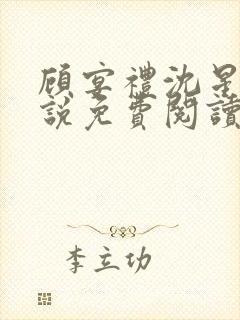 顾宴禮沈星
說免費閱讀
李立功